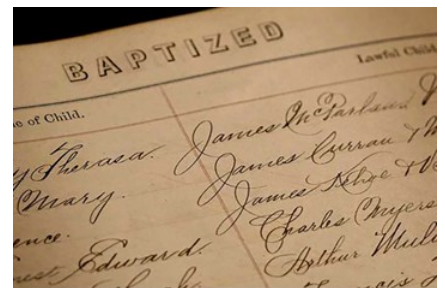 BAPTIZED
e of Child.
Lawful Child
y Therasa.
Mary.
ence.
est Edward.
James McParland
James Curran &
James Kehoe &
Charles Myers
Arthur Mul